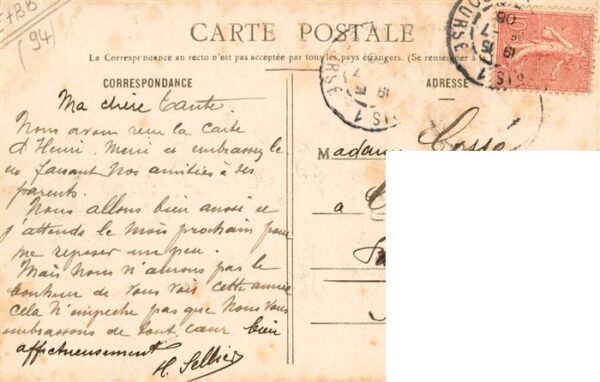 E+BB
(94)
CARTE POSTALE
La Correspondance au recto n'est pas acceptée par tous les pays étrangers. (Se renseigner à
CORRESPONDANCE
ADRESSE
Ma chère Tante.
Nous avons reçu la carte
d'Henri. Merci et embrassez le
en faisant nos amitiés à ses
parents.
Nous allons bien aussi et
j'attends le mois prochain pour
me reposer un peu.
Mais nous n'aurons pas le
bonheur de vous voir cette année
cela n'empeche pas que nous vous
embrassons de tout cœur bien
affectueusement
H. Sellier
Madame
à